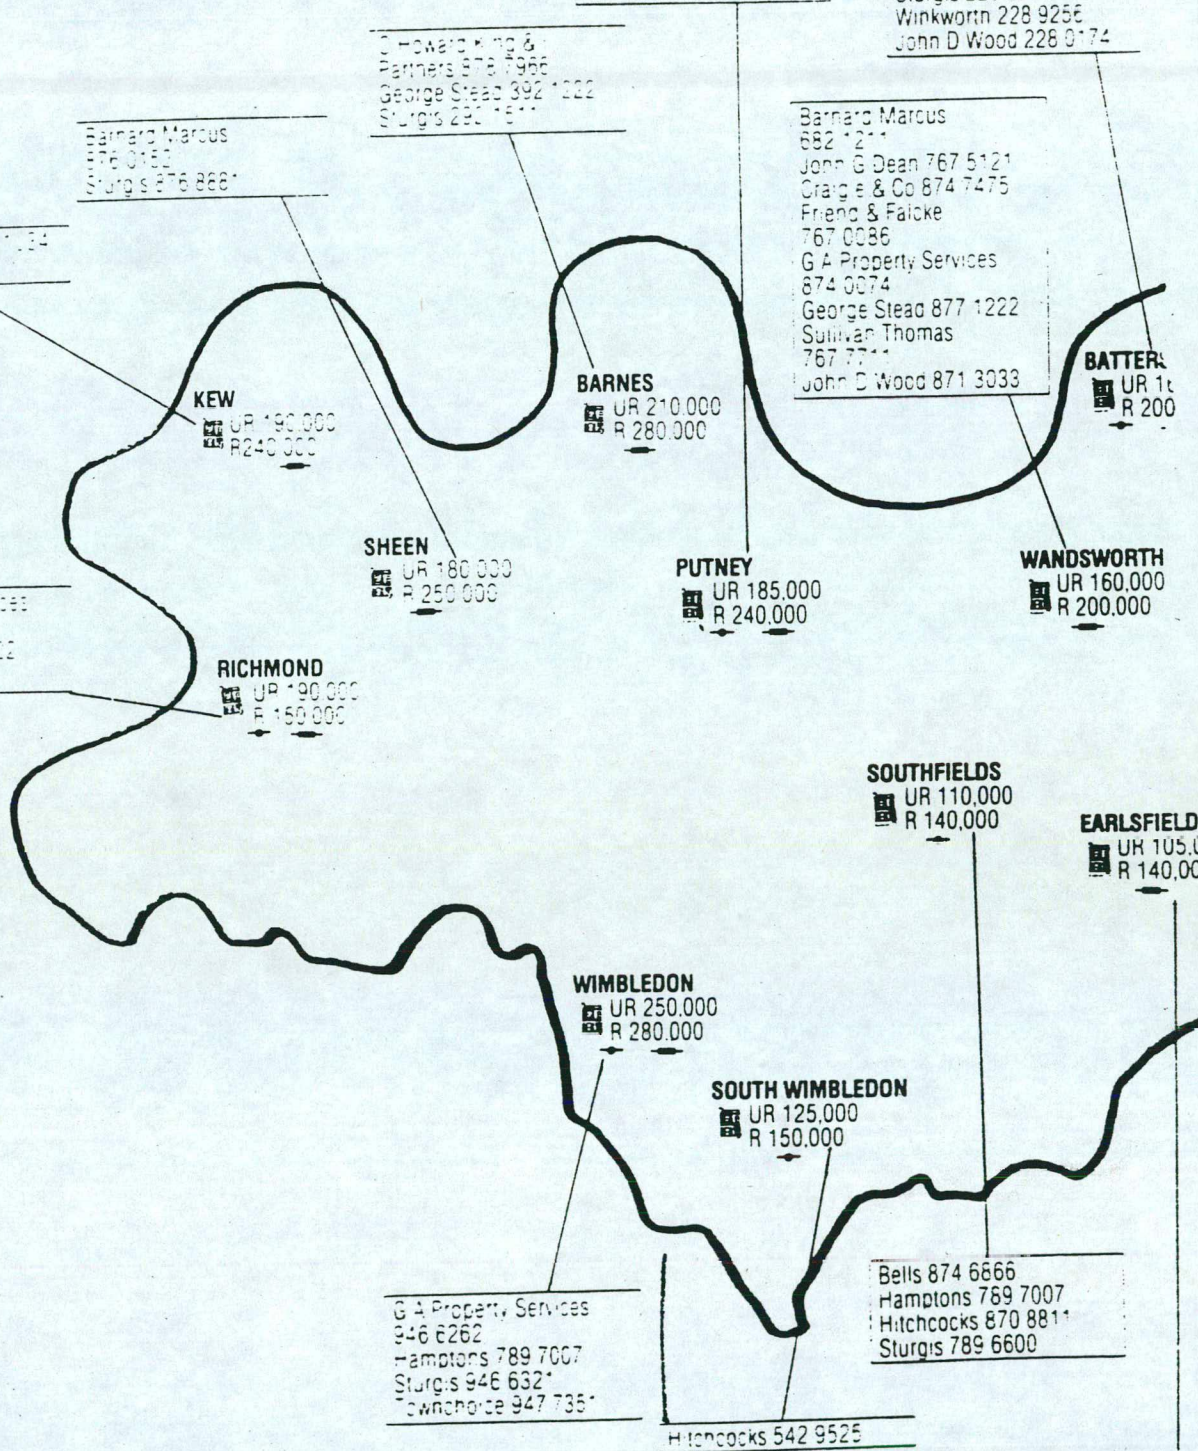 Winkworth 228 9256
John D Wood 228 0174
Howard King &
Partners
George Stead 392 1222
Sturgis
Barnard Marcus
Sturgis 876 8881
Barnard Marcus
682 1211
John G Dean 767 5121
Craigie & Co 874 7475
Friend & Falcke
767 0086
G A Property Services
874 0074
George Stead 877 1222
Sullivan Thomas
767 7711
John D Wood 871 3033
KEW
UR 190.000
R240 000
BARNES
UR 210.000
R 280.000
BATTERS
UR 1
R 200
SHEEN
UR 180 000
R 250 000
PUTNEY
UR 185,000
R 240,000
WANDSWORTH
UR 160,000
R 200.000
RICHMOND
UR 190.000
R 150 000
SOUTHFIELDS
UR 110,000
R 140,000
EARLSFIELD
UR 105,0
R 140,00
WIMBLEDON
UR 250.000
R 280.000
SOUTH WIMBLEDON
UR 125,000
R 150.000
G A Property Services
946 6262
Hamptons 789 7007
Sturgis 946 6321
Townchoice 947 7351
Bells 874 6866
Hamptons 789 7007
Hitchcocks 870 8811
Sturgis 789 6600
Hitchcocks 542 9525